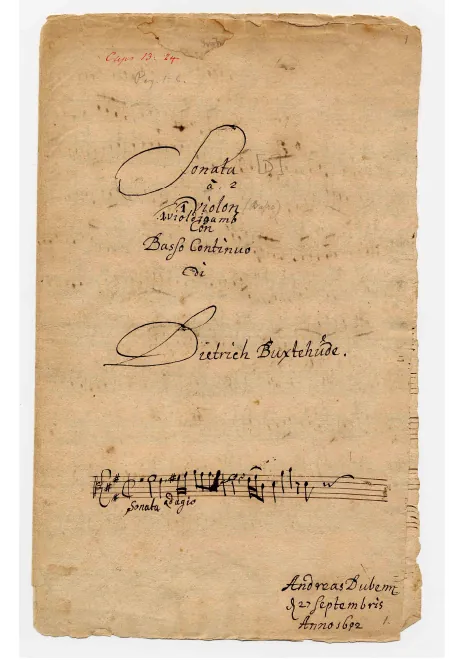 Caps 13: 24
Sonata
[D]
à 2
1 Violon
1 Violdigamb
Con
Basso Continuo.
di
Dietrich Buxtehude.
Sonata adagio
Andreas Düben
27 Septembris
Anno 1692